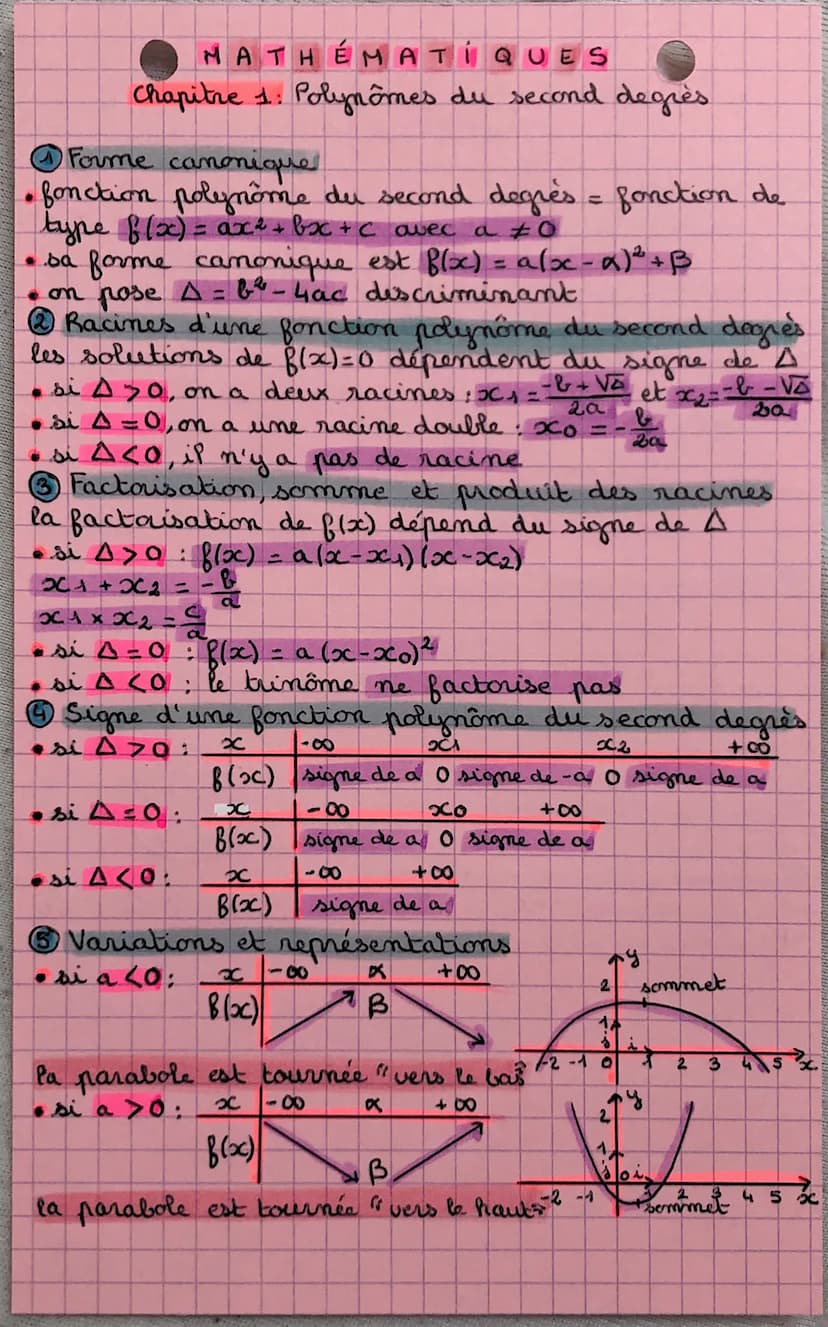 MATHÉMATIQUES
Chapitre 1: Polynômes du second degrès
① Forme canonique
• fonction polynôme du second degrès = fonction de
type f(x) = ax² + bx + c avec a ≠ 0
• sa forme canonique est f(x) = a(x - α)² + β
• on pose Δ = b² - 4ac discriminant
② Racines d'une fonction polynôme du second degrès
les solutions de f(x)=0 dépendent du signe de Δ
• si Δ > 0, on a deux racines : x1 = (-b + √Δ)/2a et x2 = (-b - √Δ)/2a
• si Δ = 0, on a une racine double : x0 = -b/2a
• si Δ < 0, il n'y a pas de racine
③ Factorisation, somme et produit des racines
la factorisation de f(x) dépend du signe de Δ
• si Δ > 0 : f(x) = a(x - x1)(x - x2)
x1 + x2 = -b/a
x1 × x2 = c/a
• si Δ = 0 : f(x) = a(x - x0)²
• si Δ < 0 : le trinôme ne factorise pas
④ Signe d'une fonction polynôme du second degrès
• si Δ > 0 : x -∞ x1 x2 +∞
f(x) signe de a 0 signe de -a 0 signe de a
• si Δ = 0 : x -∞ x0 +∞
f(x) signe de a 0 signe de a
• si Δ < 0 : x -∞ +∞
f(x) signe de a
⑤ Variations et représentations
• si a < 0 : x -∞ α +∞
f(x) β
y
2 sommet
1
j i
-2 -1 0 1 2 3 4 5 x
la parabole est tournée "vers le bas"
• si a > 0 : x -∞ α +∞
f(x) β
y
2
1
j 0 i
-2 -1 1 2 3 4 5 x
sommet
la parabole est tournée "vers le haut"